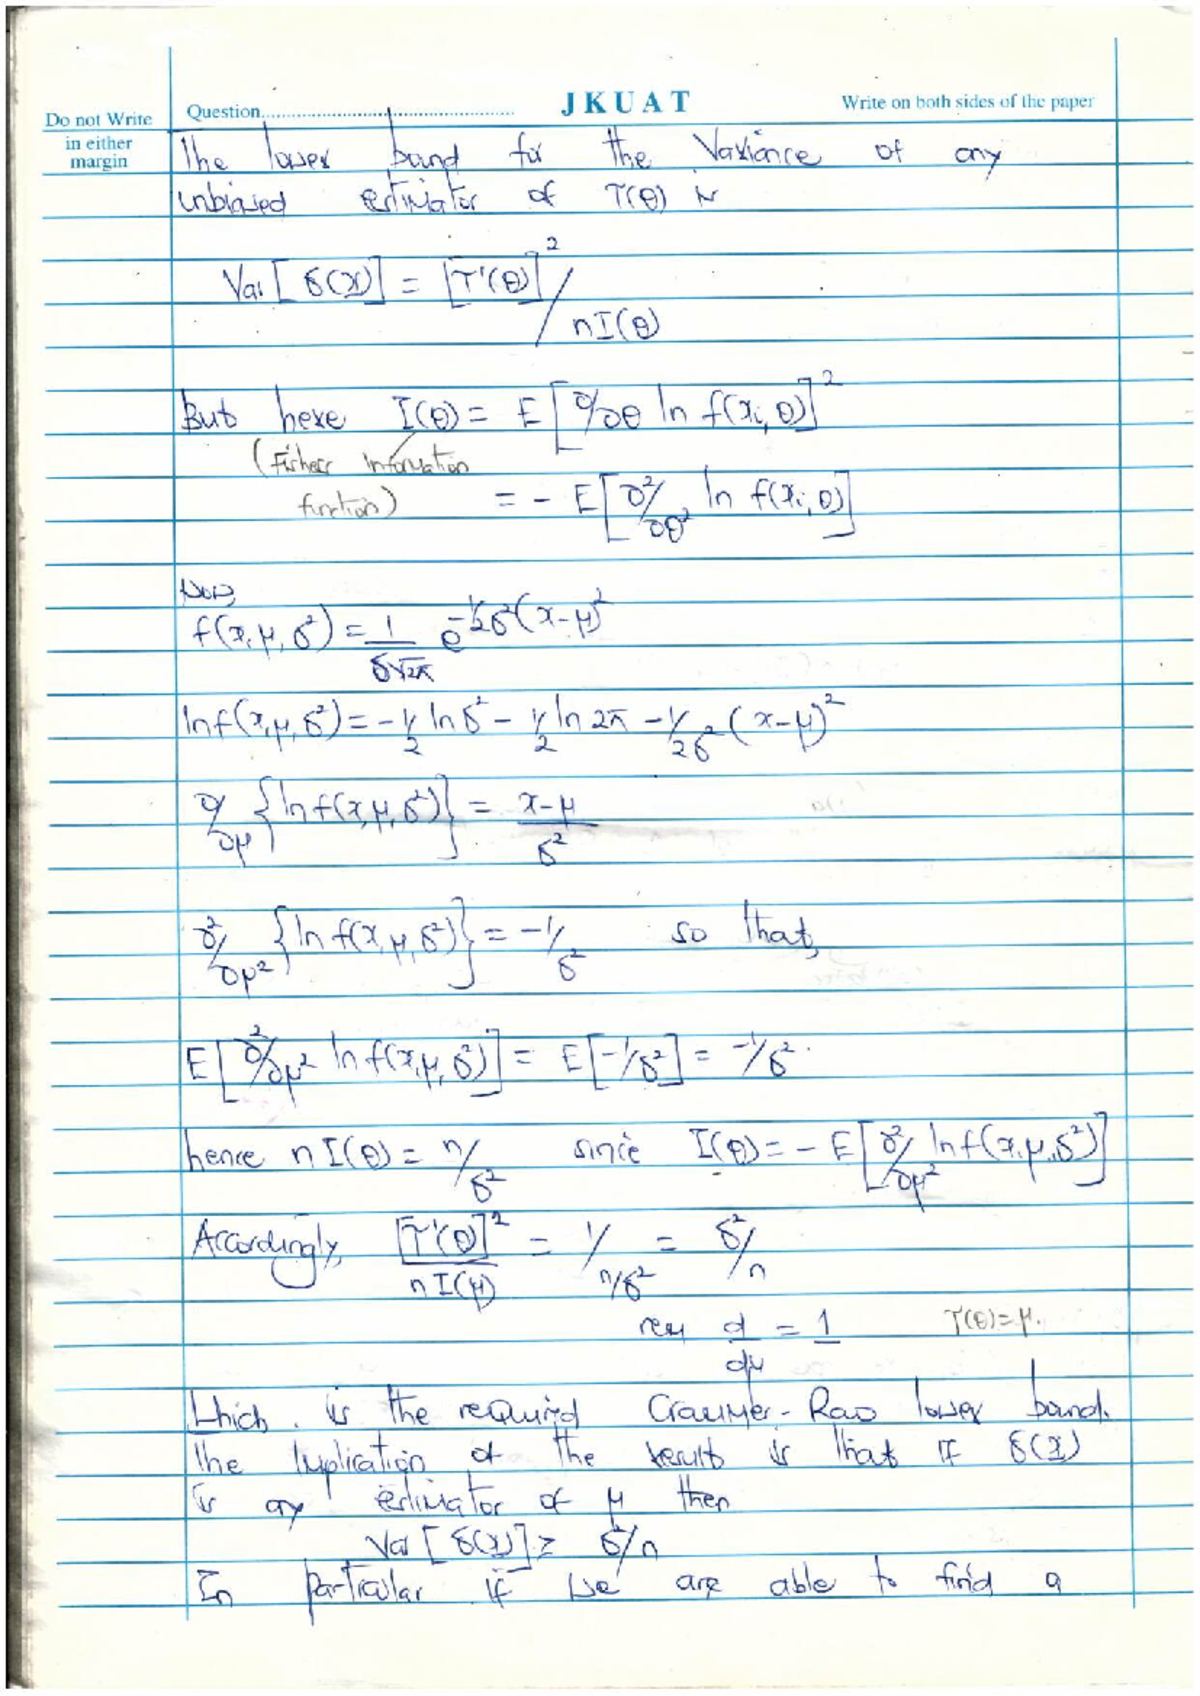 Do not Write
in either
margin
Question..............................................
JKUAT
Write on both sides of the paper
The lower bound for the Variance of any
unbiased estimator of T(θ) is
Var [δ(x)] = [T'(θ)]² / nI(θ)
But here I(θ) = E[∂/∂θ ln f(xi, θ)]²
(Fishers Information
function)
= - E[∂²/∂θ² ln f(xi, θ)]
Now,
f(x, μ, δ²) = 1/δ√2π e^-1/2δ²(x-μ)²
ln f(x, μ, δ²) = -1/2 ln δ² - 1/2 ln 2π - 1/2δ² (x-μ)²
∂/∂μ {ln f(x, μ, δ²)} = x-μ / δ²
∂²/∂μ² {ln f(x, μ, δ²)} = -1/δ² so that,
E[∂²/∂μ² ln f(x, μ, δ²)] = E[-1/δ²] = -1/δ².
hence nI(θ) = n/δ² since I(θ) = - E[∂²/∂μ² ln f(x, μ, δ²)]
Accordingly, [T'(θ)]² / nI(μ) = 1/n/δ² = δ²/n
rem d/dμ = 1 T(θ) = μ.
Which is the required Crammer-Rao lower bound.
The Implication of the result is that if δ(x)
is any estimator of μ then
Var [δ(x)] ≥ δ²/n
In particular if we are able to find a